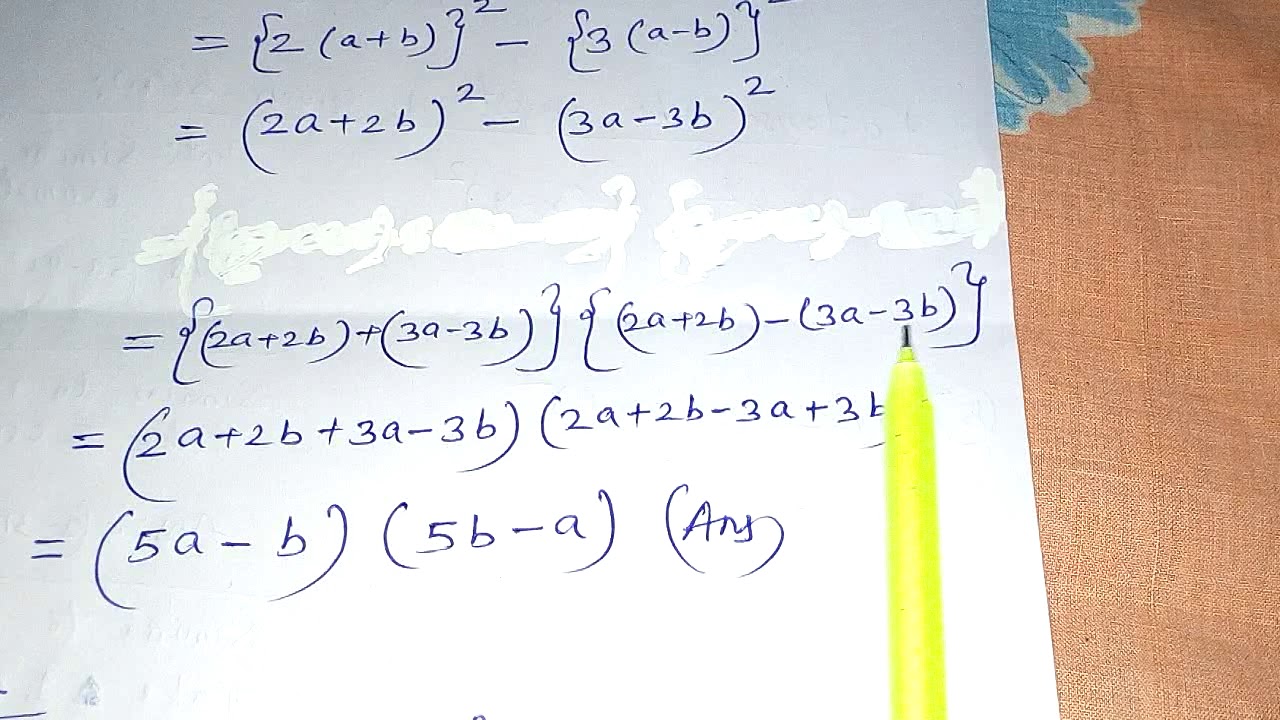 = {2 (a+b)}² - {3 (a-b)}²
= (2a+2b)² - (3a-3b)²
= {(2a+2b)+(3a-3b)} {(2a+2b)-(3a-3b)}
= (2a+2b+3a-3b) (2a+2b-3a+3b
= (5a-b) (5b-a) (Ans)